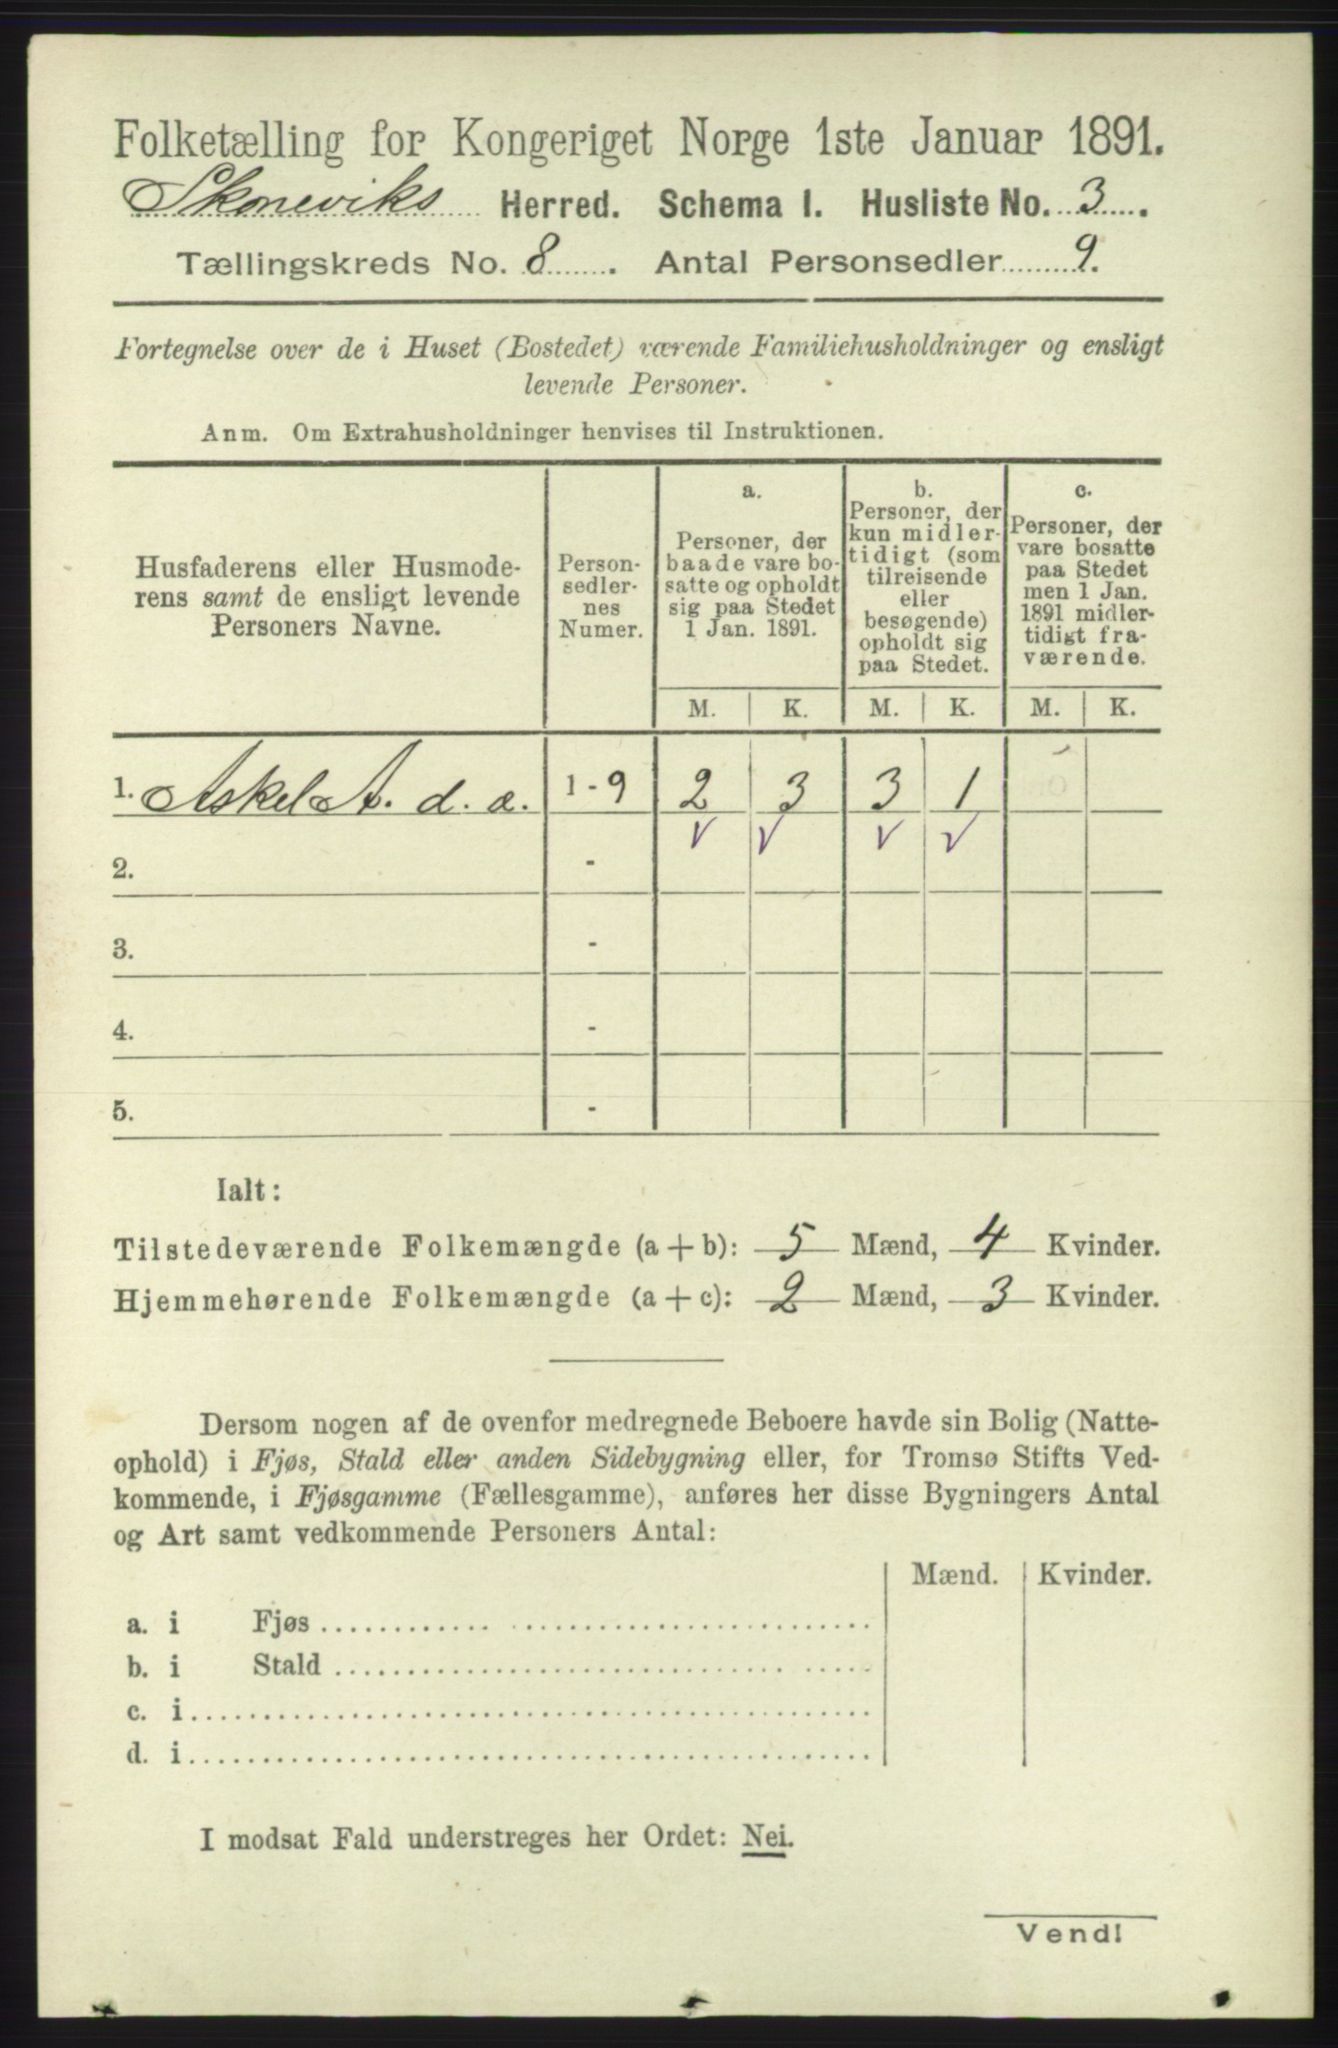 Folketælling for Kongeriget Norge 1ste Januar 1891.
Skoneviks Herred. Schema I. Husliste No. 3.
Tællingskreds No. 8. Antal Personsedler 9.
Fortegnelse over de i Huset (Bostedet) værende Familiehusholdninger og ensligt
levende Personer.
Anm. Om Extrahusholdninger henvises til Instruktionen.
Husfaderens eller Husmode-
rens samt de ensligt levende
Personers Navne.
Person-
sedler-
nes
Numer.
a.
Personer, der
baade vare bo-
satte og opholdt
sig paa Stedet
1 Jan. 1891.
b.
Personer, der
kun midler-
tidigt (som
tilreisende
eller
besøgende)
opholdt sig
paa Stedet.
c.
Personer, der
vare bosatte
paa Stedet
men 1 Jan.
1891 midler-
tidigt fra-
værende.
M. K. M. K. M. K.
1. Askel A. d. æ. 1-9 2 3 3 1
2. -
3. -
4. -
5. -
Ialt:
Tilstedeværende Folkemængde (a+b): 5 Mænd, 4 Kvinder.
Hjemmehørende Folkemængde (a+c): 2 Mænd, 3 Kvinder.
Dersom nogen af de ovenfor medregnede Beboere havde sin Bolig (Natte-
ophold) i Fjøs, Stald eller anden Sidebygning eller, for Tromsø Stifts Ved-
kommende, i Fjøsgamme (Fællesgamme), anføres her disse Bygningers Antal
og Art samt vedkommende Personers Antal:
Mænd. Kvinder.
a. i Fjøs
b. i Stald
c. i
d. i
I modsat Fald understreges her Ordet: Nei.
Vend!